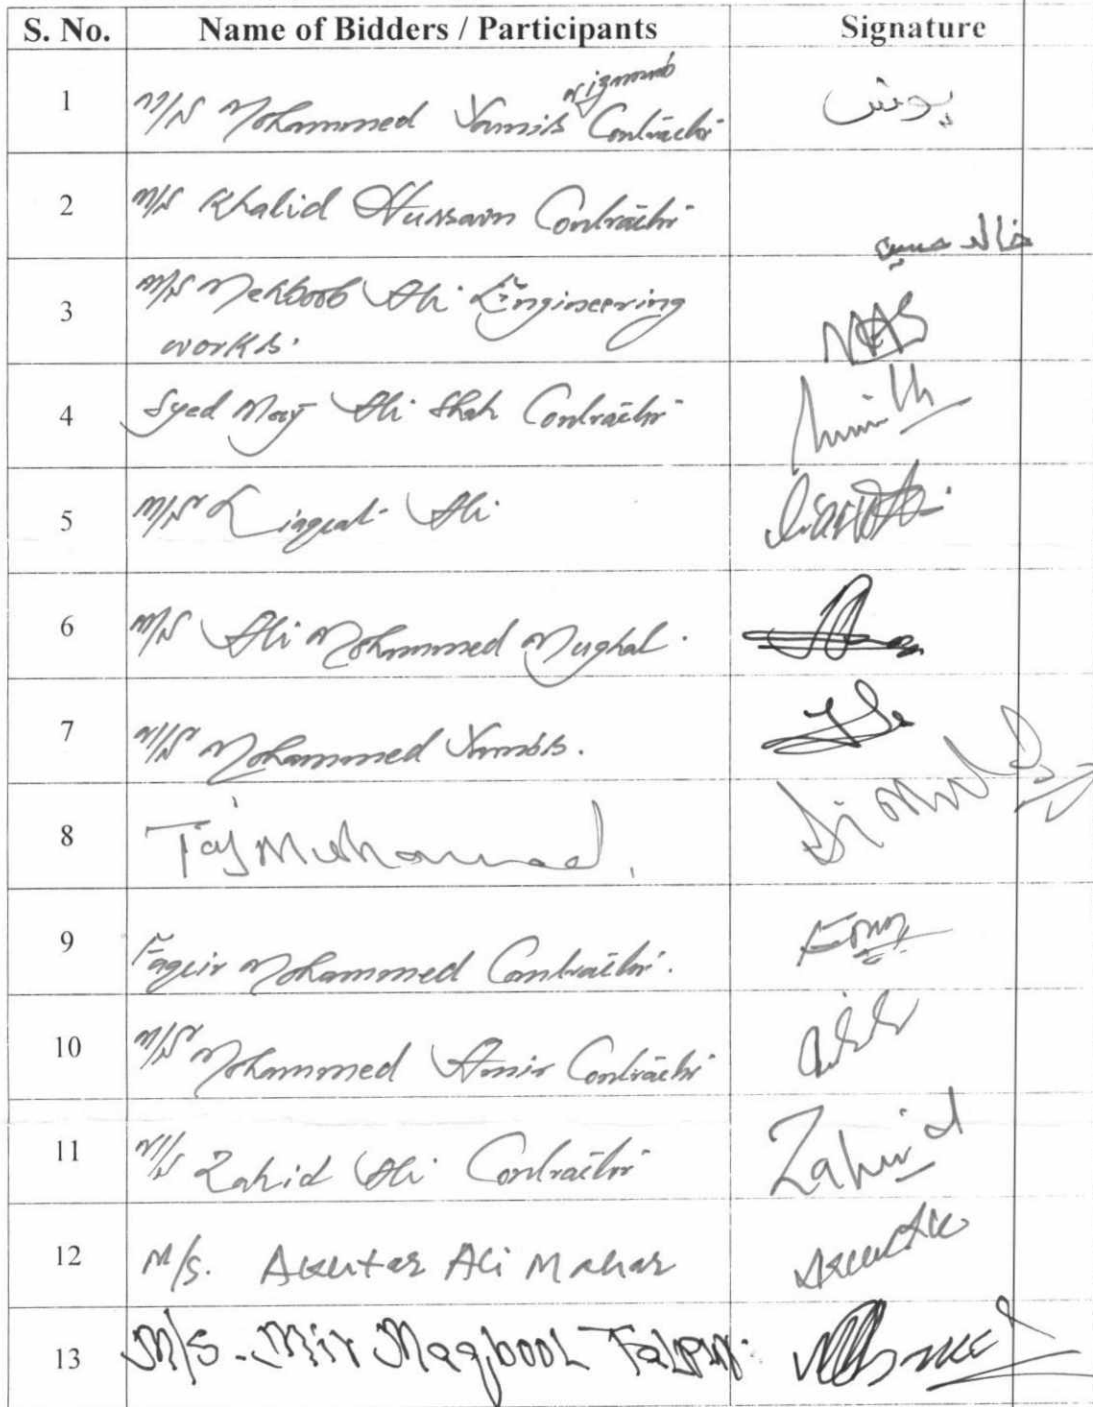 S. No. Name of Bidders / Participants Signature
1 M/S Mohammed Younis Contractor یونس
2 M/S Khalid Hussain Contractor خالد حسین
3 M/S Mehboob Ali Engineering
works. MAS
4 Syed Ali Shah Contractor
5 M/S Liaqat Ali
6 M/S Ali Mohammed Mughal.
7 M/S Mohammed Younis.
8 Taj Muhammad.
9 Faqir Mohammed Contractor.
10 M/S Mohammed Amir Contractor
11 M/S Zahid Ali Contractor Zahid
12 M/S. Akhtar Ali Mahar
13 M/S. Mir Maqbool Talpur.